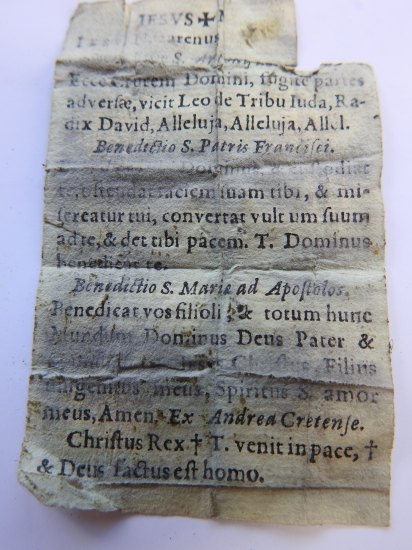 IESVS ✝
Nazarenus
S.
Ecce Crucem Domini, fugite partes
adversæ, vicit Leo de Tribu Iuda, Ra-
dix David, Alleluja, Alleluja, Allel.
Benedictio S. Patris Francisci.
te, ostendat faciem suam tibi, & mi-
sereatur tui, convertat vultum suum
ad te, & det tibi pacem. T. Dominus
benedicat te.
Benedictio S. Mariæ ad Apostolos.
Benedicat vos filioli, & totum hunc
Mundum Dominus Deus Pater &
Filius
unigenitus meus, Spiritus S. amor
meus, Amen. Ex Andrea Cretense.
Christus Rex ✝ T. venit in pace, ✝
& Deus factus est homo.